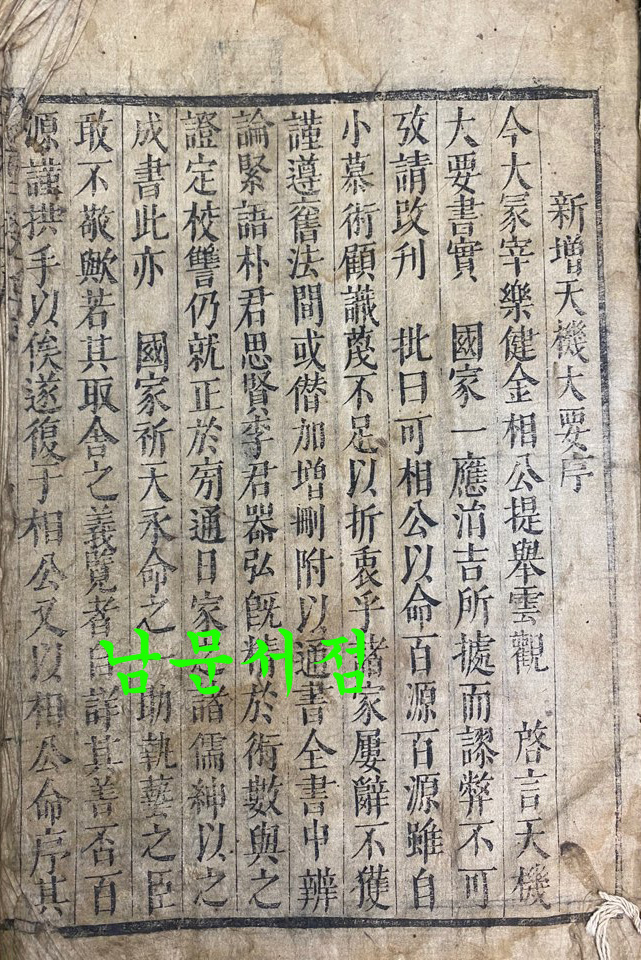 新增天機大要序
今大冢宰樂健金相公提舉雲觀 啓言天機
大要書實 國家一應治吉所據而謬弊不可
攷請改刊 批曰可相公以命百源百源雖自
小慕術顧識蔑不足以折衷乎諸家屢辭不獲
謹遵舊法間或僭加增刪附以通書全書中辨
論緊語朴君思賢李君器弘旣精於術數與之
證定校讐仍就正於旁通日家 諸儒紳以之
成書此亦 國家祈天永命之 助執藝之臣
敢不敬歟若其取舍之義覽者自詳其善否百
源謹拱手以俟遂復于相公又以相公命序其
남문서점